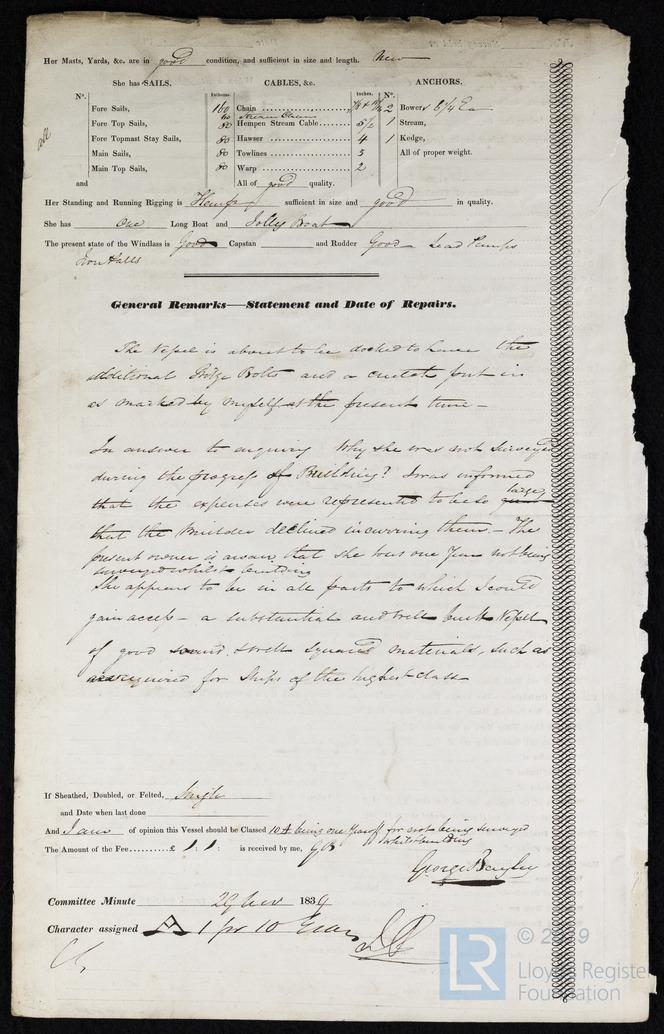 Her Masts, Yards, &c. are in good condition, and sufficient in size and length. New
She has SAILS. CABLES, &c. ANCHORS.
Nº. Fathoms. Inches. Nº.
all Fore Sails, 160 Chain 2 Bowers
Stream Chain
Fore Top Sails, 80 Hempen Stream Cable 5½ 1 Stream,
Fore Topmast Stay Sails, 80 Hawser 4 1 Kedge,
Main Sails, 80 Towlines 3 All of proper weight.
Main Top Sails, 80 Warp 2
and All of good quality.
Her Standing and Running Rigging is Hemp sufficient in size and good in quality.
She has One Long Boat and Jolly Boat
The present state of the Windlass is Good Capstan and Rudder Good Lead Pumps
General Remarks—Statement and Date of Repairs.
The Vessel is about to be docked to have the
additional Bolts and a put in
as marked by myself at the present time -
In answer to enquiry Why she was not Surveyed
during the progress of Building? I was informed
that the expenses were represented to be so large
that the Builder declined incurring them. - The
present owner is aware that she loses one Year not being
surveyed whilst building
She appears to be in all parts to which I could
gain access - a substantial and well built Vessel
of good sound, & well squared materials, such as
are required for Ships of the highest class
If Sheathed, Doubled, or Felted, Single
and Date when last done
And I am of opinion this Vessel should be Classed 10 A being one Year off for not being surveyed
whilst building
The Amount of the Fee £ 1 : 1 : is received by me, GB
George Bayley
Committee Minute 29 Nov 1839
Character assigned A 1 for 10 Years
LR
© 2019
Lloyd's Register
Foundation